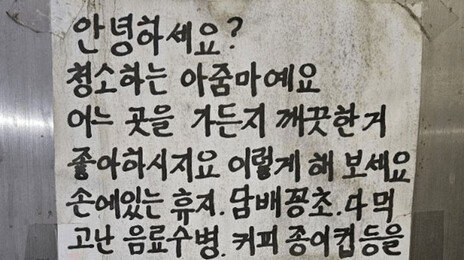 안녕하세요?
청소하는 아줌마예요
어느 곳을 가든지 깨끗한거
좋아하시지요 이렇게 해 보세요
손에있는 휴지. 담배꽁초. 다 먹
고난 음료수병. 커피 종이컵등을